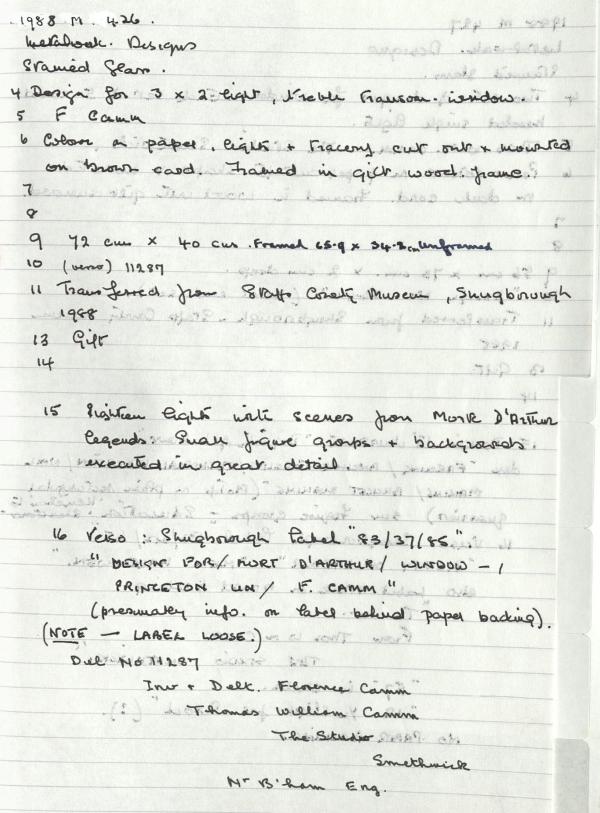 1988 M. 426.
Metalwork. Designs
Stained Glass.
4 Design for 3 x 2 light, treble transom. window.
5 F Camm
6 Colour on paper, lights + tracery cut out & mounted
on brown card. Framed in gilt wood frame.
7
8
9 72 cms x 40 cms. Framed 65.9 x 34.2cm Unframed
10 (verso) 11287
11 Transferred from Staffs County Museum, Shugborough
1988
13 Gift
14
15 Eighteen lights with scenes from Mort D'Arthur
legends: Small figure groups + backgrounds
executed in great detail.
16 Verso: Shugborough label "83/37/85".
"DESIGN FOR/ MORT D'ARTHUR/ WINDOW - /
PRINCETON UN/ F. CAMM"
(presumably info. on label behind paper backing).
(NOTE — LABEL LOOSE.)
Del No 11287
Inv + Delt. Florence Camm"
Thomas William Camm
The Studio
Smethwick
Nr B'ham Eng.